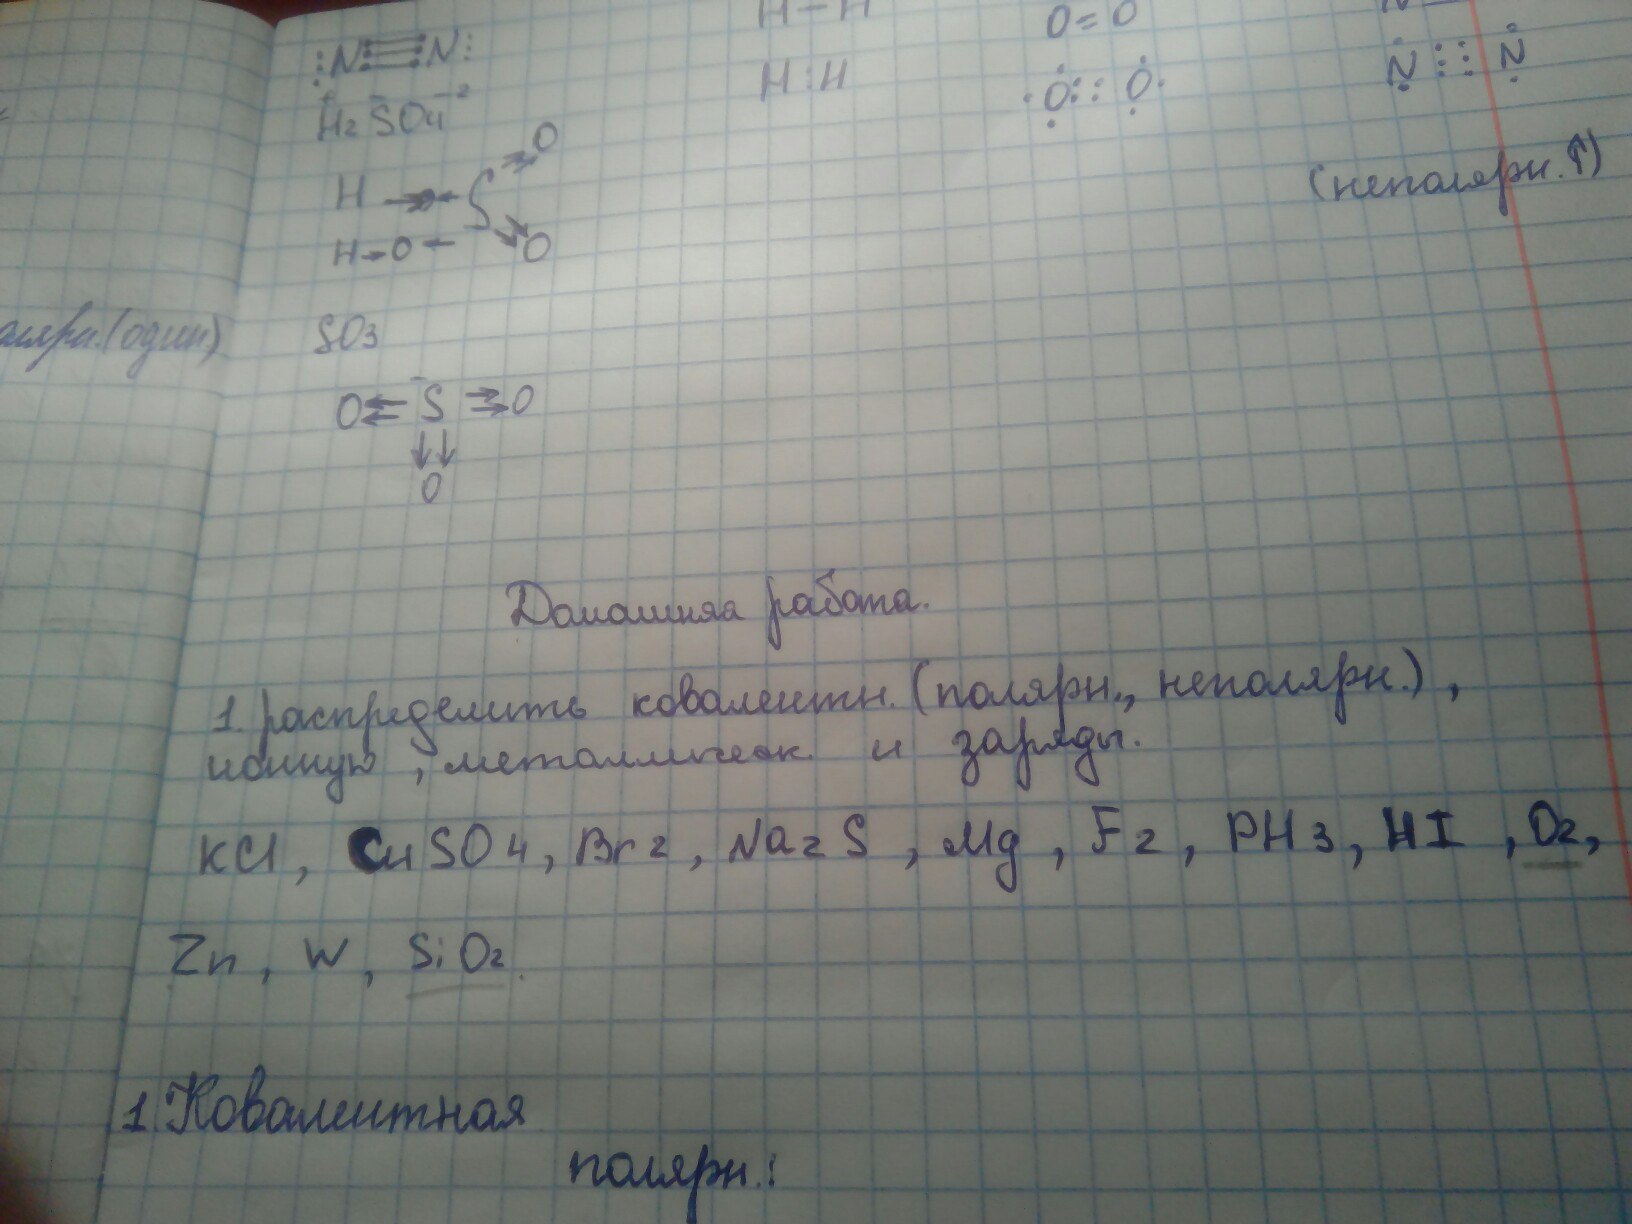 :N≡N:
H-H
O=O
H:H
O::O
N:::N
H₂SO₄⁻²
H O
H→O← S O
(неполярн.↑)
(один)
SO₃
O⇇S⇉O
↓↓
O
Домашняя работа.
1. распределить ковалентн. (полярн., неполярн.),
ионную, металлическ. и заряды.
KCl, CuSO4, Br2, Na2S, Mg, F2, PH3, HI, O2,
Zn, W, SiO2.
1. Ковалентная
полярн.: